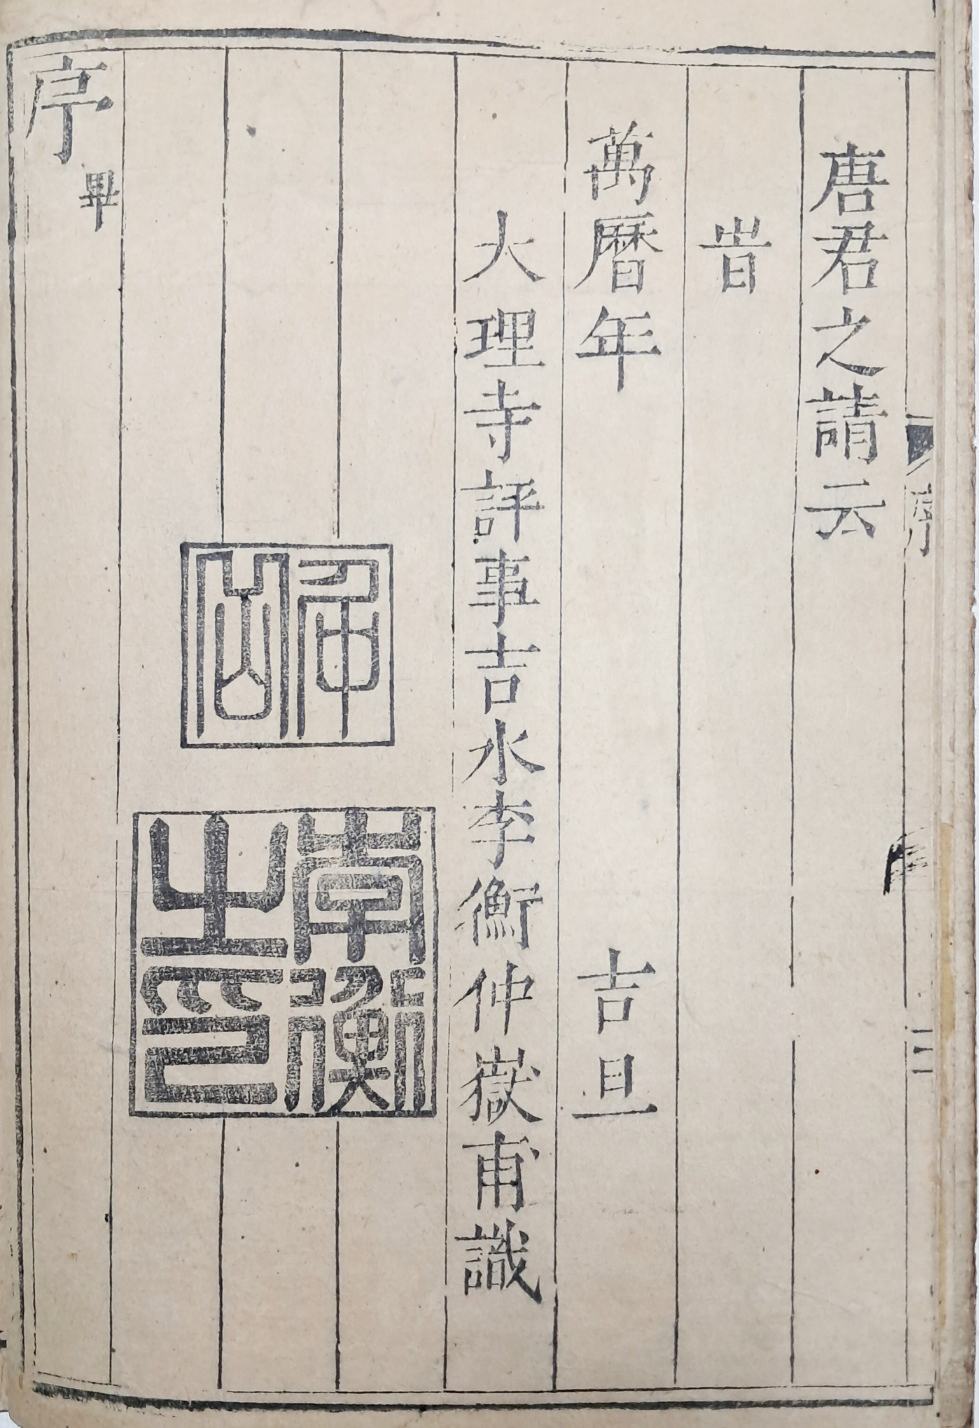 序
唐君之請云
旹
萬暦年 吉旦
大理寺評事吉水李衡仲嶽甫識
南衡之印
序畢